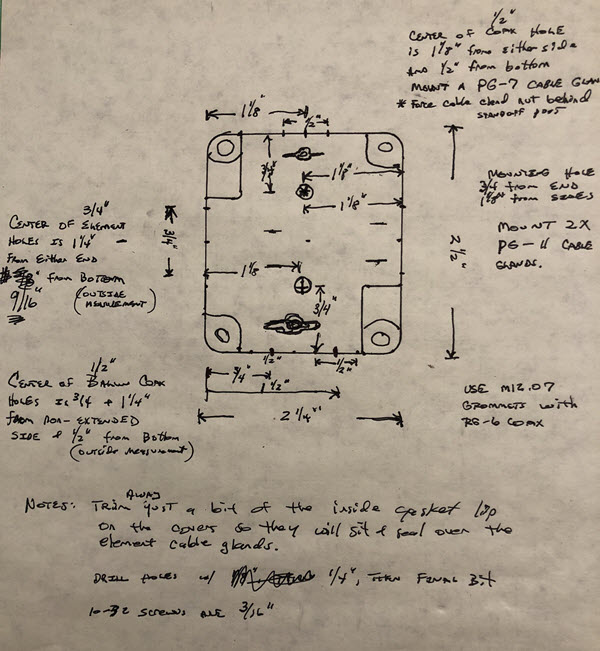 1/2"
CENTER OF COAX HOLE
is 1 1/8" from either side
AND 1/2" from bottom
MOUNT A PG-7 CABLE GLAND
* Force cable gland nut behind
STANDOFF
1 1/8"
1/2"
3/4"
1 1/8"
1 1/8"
MOUNTING HOLE
3/4 from END
1 1/8" from SIDES
MOUNT 2X
PG-11 CABLE
GLANDS.
2 1/2"
3/4"
CENTER OF ELEMENT
HOLES IS 1 1/4"
From Either End
from Bottom
9/16" (OUTSIDE
MEASUREMENT)
3/4"
1 1/8
3/4"
1/2"
1/2"
3/4"
1 1/2"
2 1/4"
1/2"
CENTER OF BALUN COAX
HOLES IS 3/4 & 1 1/4"
FROM NON-EXTENDED
SIDE & 1/2" from Bottom
(outside measurement)
USE M12.07
GROMMETS with
RG-6 COAX
AWAY
NOTES: Trim just a bit of the inside gasket lip
on the covers so they will sit & seal over the
element cable glands.
DRILL HOLES w/ 1/4", THEN FINAL Bit
10-32 SCREWS ARE 3/16"